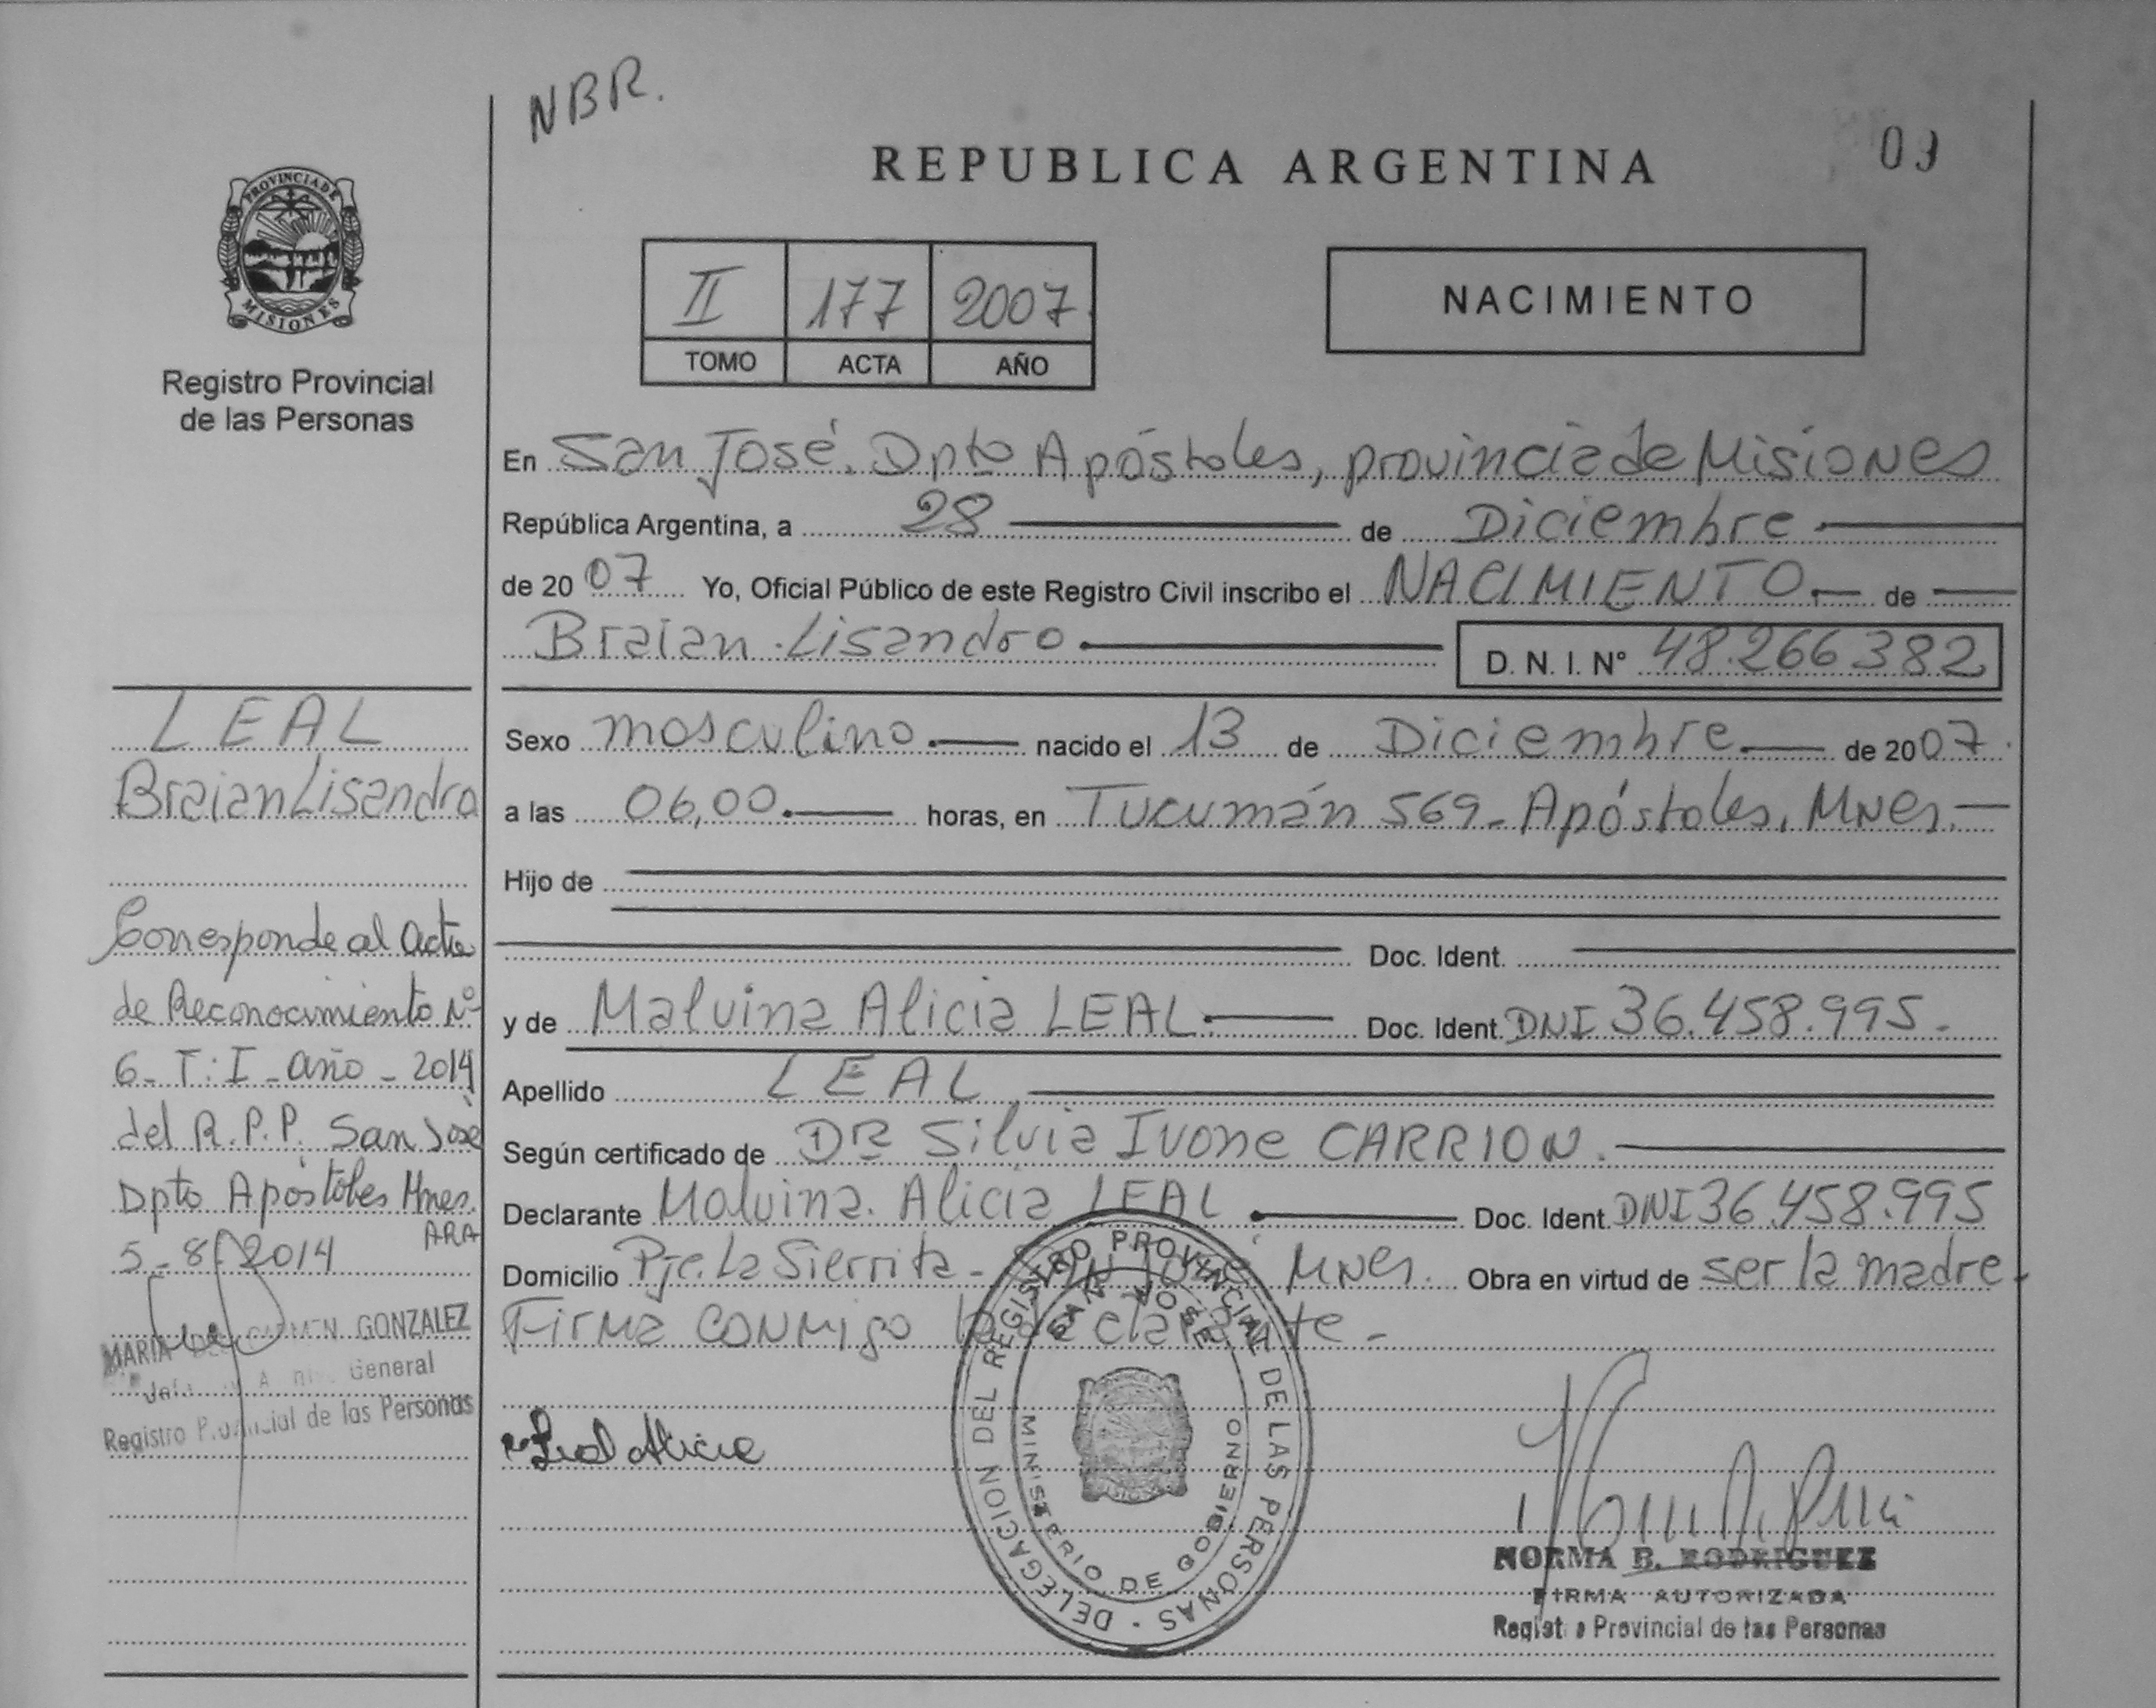 NBR.
REPUBLICA ARGENTINA
09
PROVINCIA DE
MISIONES
Registro Provincial
de las Personas
II 177 2007
TOMO ACTA AÑO
NACIMIENTO
En San José. Dpto Apóstoles, provincia de Misiones
República Argentina, a 28 de Diciembre
de 2007 Yo, Oficial Público de este Registro Civil inscribo el NACIMIENTO. de
Braian Lisandro D. N. I. Nº 48.266382
Sexo masculino nacido el 13 de Diciembre de 2007.
a las 06,00. horas, en Tucumán 569- Apóstoles, Mnes.
Hijo de
Doc. Ident.
y de Malvina Alicia LEAL Doc. Ident. DNI 36.458.995.
Apellido LEAL
Según certificado de DRa Silvia Ivone CARRION.
Declarante Malvina. Alicia LEAL Doc. Ident. DNI 36.458.995
Domicilio Pje. La Sierrita - San José Mnes. Obra en virtud de ser la madre.
Firma conmigo la declarante -
Leal Alicia
DELEGACION DEL REGISTRO PROVINCIAL DE LAS PERSONAS -
SAN JOSE
MINISTERIO DE GOBIERNO
NORMA B. RODRIGUEZ
FIRMA AUTORIZADA
Registro Provincial de las Personas
LEAL
Braian Lisandro
Corresponde al Acta
de Reconocimiento Nº
6- T: I - año - 2014
del R.P.P. San José
Dpto Apóstoles Mnes.
ARA
5-8-2014
MARIA DEL CARMEN GONZALEZ
General
Registro Provincial de las Personas